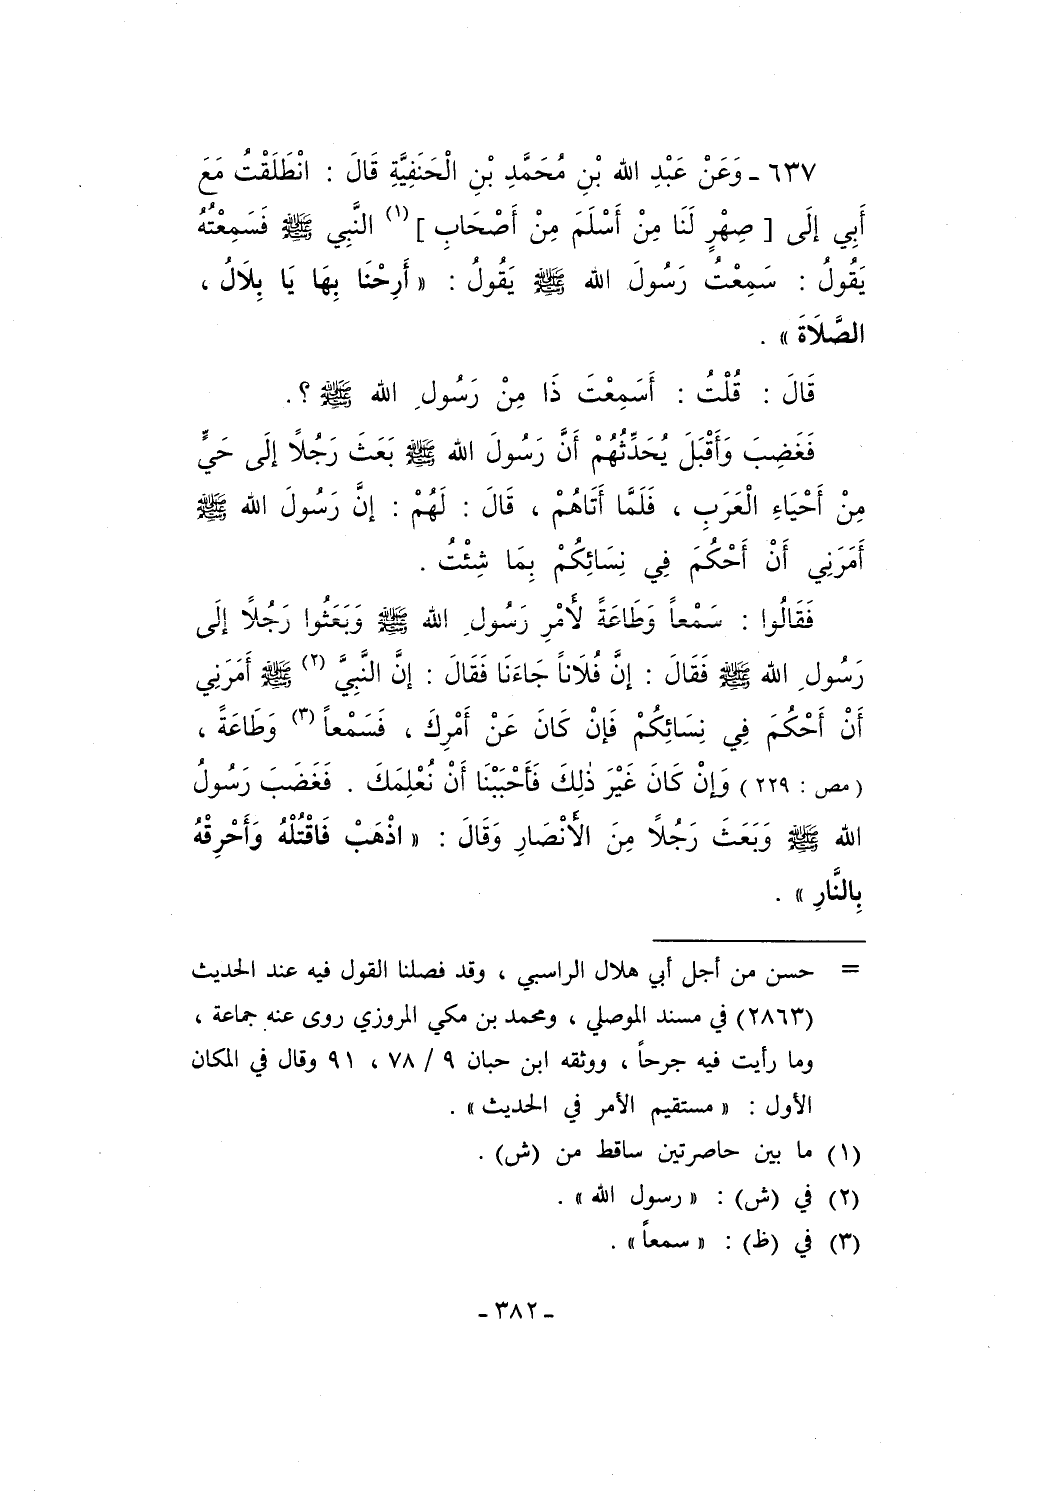 ٦٣٧ ـ وَعَنْ عَبْدِ الله بْنِ مُحَمَّدِ بْنِ الْحَنَفِيَّةِ قَالَ : انْطَلَقْتُ مَعَ
أَبِي إِلَى [ صِهْرٍ لَنَا مِنْ أَسْلَمَ مِنْ أَصْحَابِ ] (١) النَّبِي ﷺ فَسَمِعْتُهُ
يَقُولُ : سَمِعْتُ رَسُولَ الله ﷺ يَقُولُ : « أَرِحْنَا بِهَا يَا بِلَالُ ،
الصَّلَاةَ » .
قَالَ : قُلْتُ : أَسَمِعْتَ ذَا مِنْ رَسُولِ الله ﷺ ؟ .
فَغَضِبَ وَأَقْبَلَ يُحَدِّثُهُمْ أَنَّ رَسُولَ الله ﷺ بَعَثَ رَجُلاً إِلَى حَيٍّ
مِنْ أَحْيَاءِ الْعَرَبِ ، فَلَمَّا أَتَاهُمْ ، قَالَ : لَهُمْ : إِنَّ رَسُولَ الله ﷺ
أَمَرَنِي أَنْ أَحْكُمَ فِي نِسَائِكُمْ بِمَا شِئْتُ .
فَقَالُوا : سَمْعاً وَطَاعَةً لأَمْرِ رَسُولِ الله ﷺ وَبَعَثُوا رَجُلاً إِلَى
رَسُولِ الله ﷺ فَقَالَ : إِنَّ فُلَاناً جَاءَنَا فَقَالَ : إِنَّ النَّبِيَّ (٢) ﷺ أَمَرَنِي
أَنْ أَحْكُمَ فِي نِسَائِكُمْ فَإِنْ كَانَ عَنْ أَمْرِكَ ، فَسَمْعاً (٣) وَطَاعَةً ،
( مص : ٢٢٩ ) وَإِنْ كَانَ غَيْرَ ذٰلِكَ فَأَحْبَبْنَا أَنْ نُعْلِمَكَ . فَغَضَبَ رَسُولُ
الله ﷺ وَبَعَثَ رَجُلاً مِنَ الأَنْصَارِ وَقَالَ : « اذْهَبْ فَاقْتُلْهُ وَأَحْرِقْهُ
بِالنَّارِ » .
= حسن من أجل أبي هلال الراسبي ، وقد فصلنا القول فيه عند الحديث
(٢٨٦٣) في مسند الموصلي ، ومحمد بن مكي المروزي روى عنه جماعة ،
وما رأيت فيه جرحاً ، ووثقه ابن حبان ٩ / ٧٨ ، ٩١ وقال في المكان
الأول : « مستقيم الأمر في الحديث » .
(١) ما بين حاصرتين ساقط من (ش) .
(٢) في (ش) : « رسول الله » .
(٣) في (ظ) : « سمعاً » .
ـ ٣٨٢ ـ